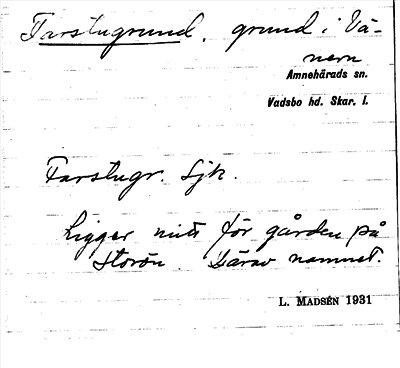 Farstugrund. grund i Vä-
nern
Amnehärads sn.
Vadsbo hd. Skar. l.
Farstugr. Sjk.
Ligger mitt för gården på
Storön. Därav namnet.
L. MADSÉN 1931